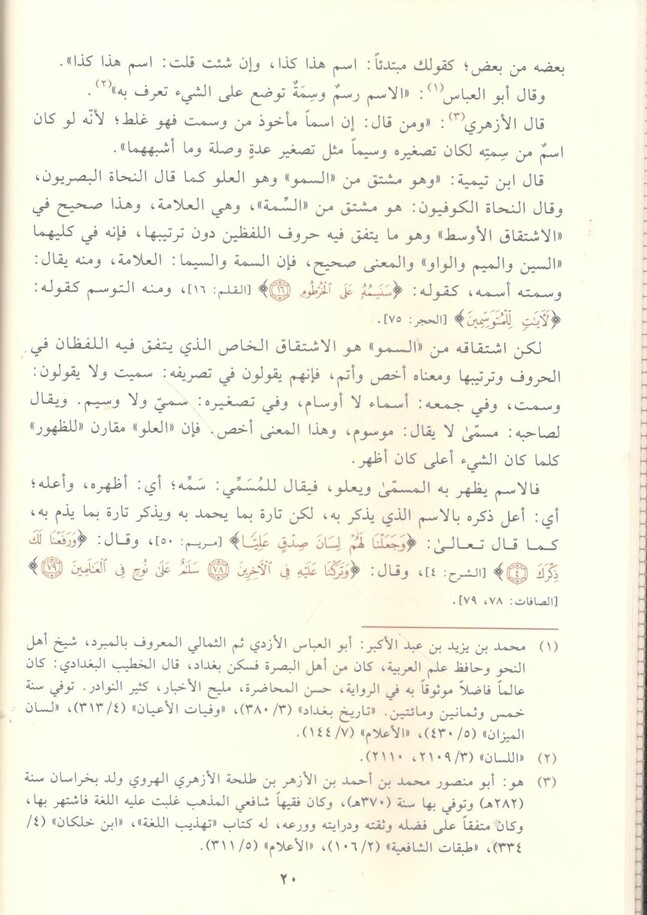 بعضه من بعض؛ كقولك مبتدئاً: اسم هذا كذا، وإن شئت قلت: اسم هذا كذا».
وقال أبو العباس(١): «الاسم رسمٌ وسِمَةٌ توضع على الشيء تعرف به»(٢).
قال الأزهري(٣): «ومن قال: إن اسماً مأخوذ من وسمت فهو غلط؛ لأنّه لو كان
اسمٌ من سِمتِه لكان تصغيره وسيماً مثل تصغير عدةٍ وصلة وما أشبههما».
قال ابن تيمية: «وهو مشتق من «السمو» وهو العلو كما قال النحاة البصريون،
وقال النحاة الكوفيون: هو مشتق من «السِّمة»، وهي العلامة، وهذا صحيح في
«الاشتقاق الأوسط» وهو ما يتفق فيه حروف اللفظين دون ترتيبها، فإنه في كليهما
«السين والميم والواو» والمعنى صحيح، فإن السمة والسيما: العلامة، ومنه يقال:
وسمته أسمه، كقوله: ﴿سَنَسِمُهُ عَلَى الْخُرْطُومِ ۝١٦﴾ [القلم: ١٦]، ومنه التوسم كقوله:
﴿لَآيَٰتٍ لِّلْمُتَوَسِّمِينَ﴾ [الحجر: ٧٥].
لكن اشتقاقه من «السمو» هو الاشتقاق الخاص الذي يتفق فيه اللفظان في
الحروف وترتيبها ومعناه أخص وأتم، فإنهم يقولون في تصريفه: سميت ولا يقولون:
وسمت، وفي جمعه: أسماء لا أوسام، وفي تصغيره: سميّ ولا وسيم. ويقال
لصاحبه: مسمّىٰ لا يقال: موسوم، وهذا المعنى أخص. فإن «العلو» مقارن «للظهور»
كلما كان الشيء أعلى كان أظهر.
فالاسم يظهر به المسمّىٰ ويعلو، فيقال للمُسَمِّي: سَمِّه؛ أي: أظهره، وأعله؛
أي: أعل ذكره بالاسم الذي يذكر به، لكن تارة بما يحمد به ويذكر تارة بما يذم به،
كما قال تعالىٰ: ﴿وَجَعَلْنَا لَهُمْ لِسَانَ صِدْقٍ عَلِيًّا﴾ [مريم: ٥٠]، وقال: ﴿وَرَفَعْنَا لَكَ
ذِكْرَكَ ۝٤﴾ [الشرح: ٤]، وقال: ﴿وَتَرَكْنَا عَلَيْهِ فِي الْآخِرِينَ ۝٧٨ سَلَٰمٌ عَلَىٰ نُوحٍ فِي الْعَٰلَمِينَ ۝٧٩﴾
[الصافات: ٧٨، ٧٩].
(١) محمد بن يزيد بن عبد الأكبر: أبو العباس الأزدي ثم الثمالي المعروف بالمبرد، شيخ أهل
النحو وحافظ علم العربية، كان من أهل البصرة فسكن بغداد، قال الخطيب البغدادي: كان
عالماً فاضلاً موثوقاً به في الرواية، حسن المحاضرة، مليح الأخبار، كثير النوادر. توفي سنة
خمس وثمانين ومائتين. «تاريخ بغداد» (٣/ ٣٨٠)، «وفيات الأعيان» (٤/ ٣١٣)، «لسان
الميزان» (٥/ ٤٣٠)، «الأعلام» (٧/ ١٤٤).
(٢) «اللسان» (٣/ ٢١٠٩، ٢١١٠).
(٣) هو: أبو منصور محمد بن أحمد بن الأزهر بن طلحة الأزهري الهروي ولد بخراسان سنة
(٢٨٢هـ) وتوفي بها سنة (٣٧٠هـ)، وكان فقيهاً شافعي المذهب غلبت عليه اللغة فاشتهر بها،
وكان متفقاً على فضله وثقته ودرايته وورعه، له كتاب «تهذيب اللغة»، «ابن خلكان» (٤/
٣٣٤)، «طبقات الشافعية» (٢/ ١٠٦)، «الأعلام» (٥/ ٣١١).
٢٠